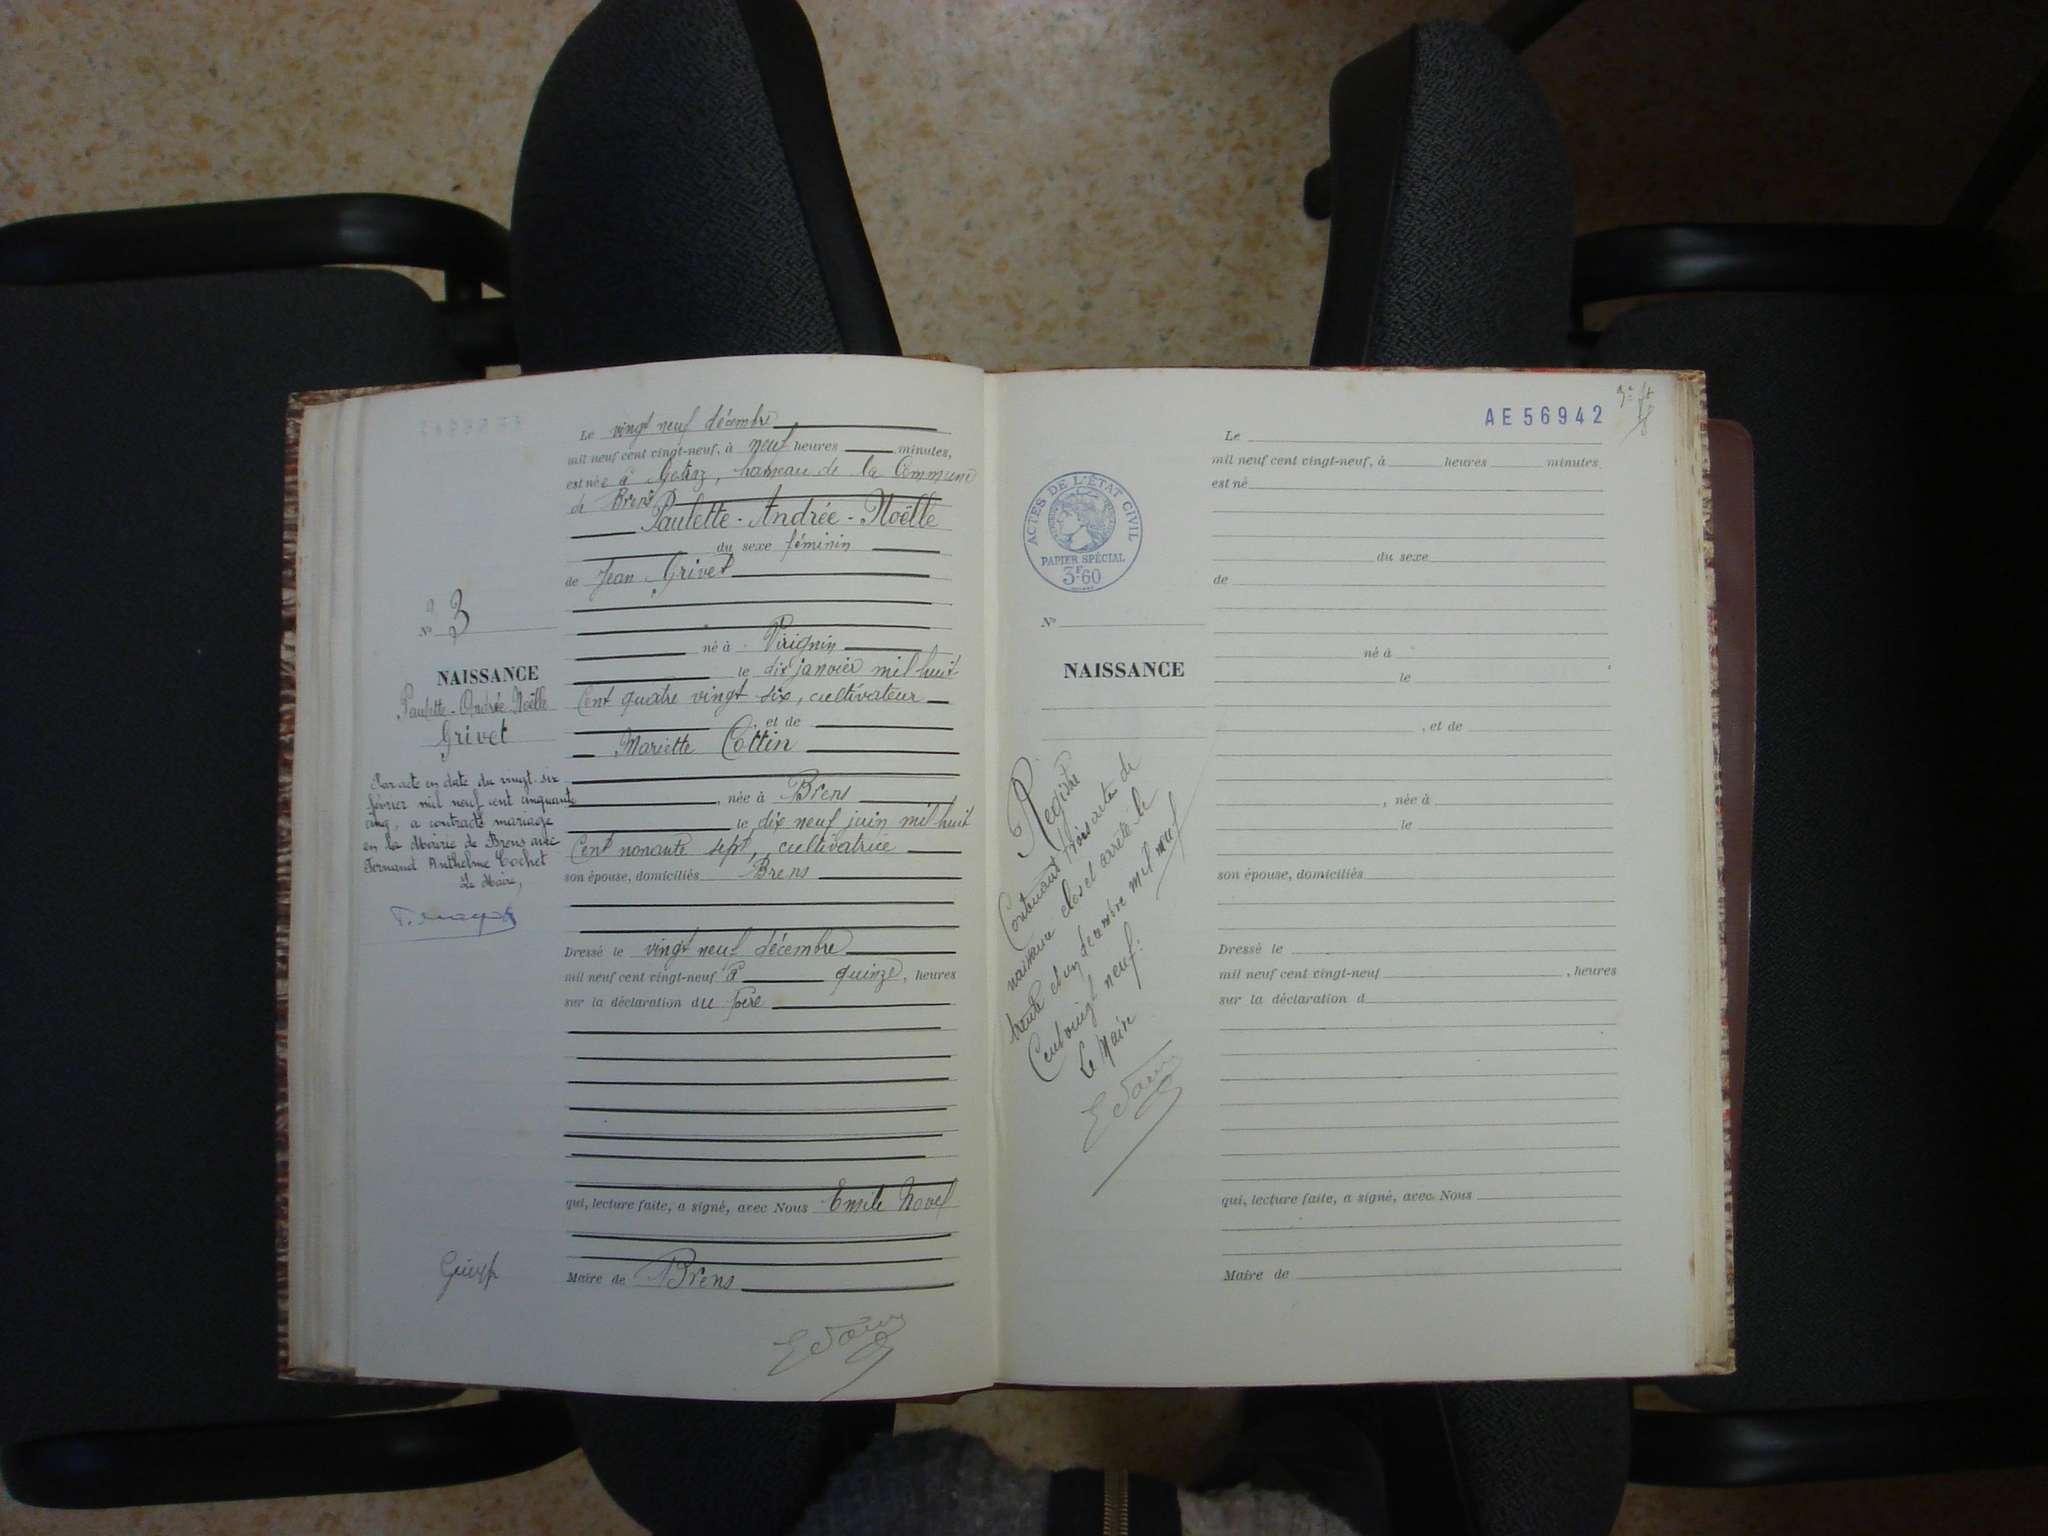 Le vingt neuf décembre
mil neuf cent vingt-neuf, à neuf heures minutes,
est née à hameau de la Commune
de Brens
Paulette - Andrée - Noëlle
du sexe féminin
de Jean Grivet
né à Virignin
le dix janvier mil huit
Cent quatre vingt six, cultivateur
et de
Mariette Cottin
, née à Brens
le dix neuf juin mil huit
Cent nonante sept, cultivatrice
son épouse, domiciliés Brens
Dressé le vingt neuf décembre
mil neuf cent vingt-neuf à quinze, heures
sur la déclaration du père
qui, lecture faite, a signé, avec Nous Emile
Maire de Brens
N° 3
NAISSANCE
Paulette - Andrée Noëlle
Grivet
Par acte en date du vingt-six
février mil neuf cent cinquante
cinq, a contracté mariage
en la Mairie de Brens avec
Fernand Anthelme Cochet
Le Maire,
AE 56942
ACTES DE L'ÉTAT CIVIL
PAPIER SPÉCIAL
3F60
N°
NAISSANCE
Registre
Contenant trois actes de
naissance clos et arrêté le
trente et un décembre mil neuf
Cent vingt neuf.
Le Maire
Le
mil neuf cent vingt-neuf, à heures minutes.
est né
du sexe
de
né à
le
, et de
, née à
le
son épouse, domiciliés
Dressé le
mil neuf cent vingt-neuf , heures
sur la déclaration d
qui, lecture faite, a signé, avec Nous
Maire de